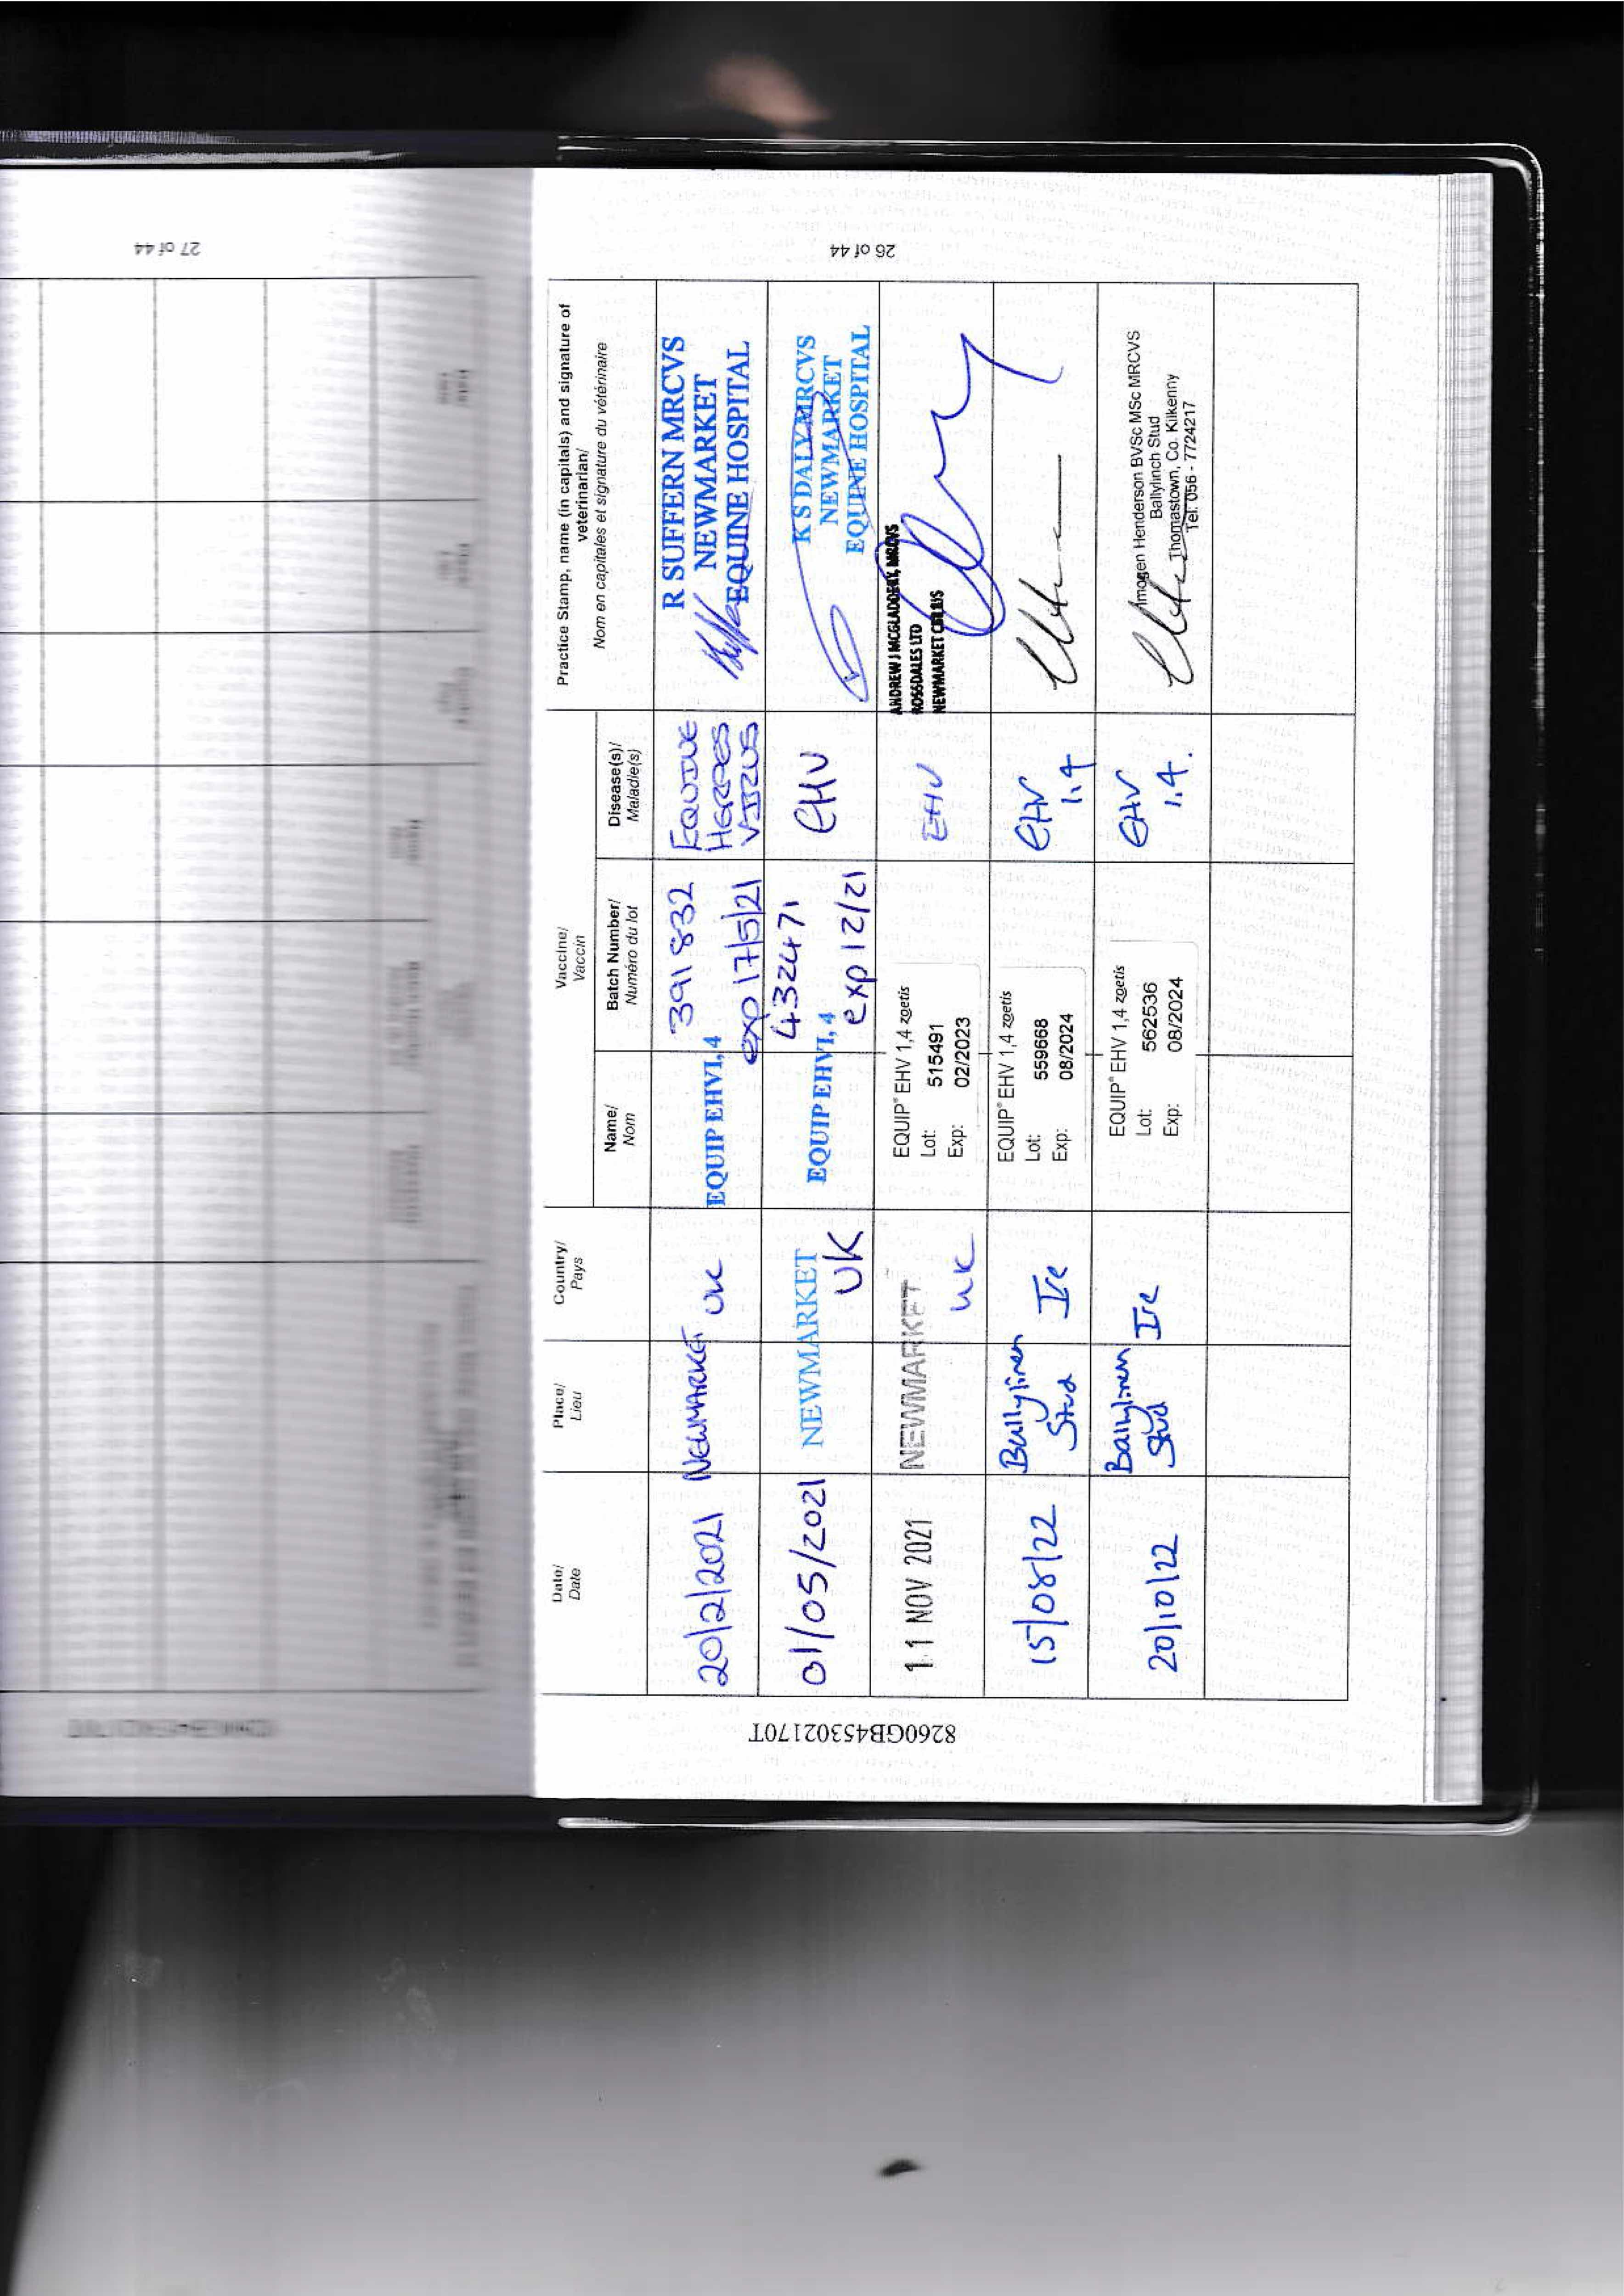 26 of 44
Date/
Date
Place/
Lieu
Country/
Pays
Vaccine/
Vaccin
Name/
Nom
Batch Number/
Numéro du lot
Disease(s)/
Maladie(s)
Practice Stamp, name (in capitals) and signature of
veterinarian/
Nom en capitales et signature du vétérinaire
20/2/2021
NEWMARKET
UK
EQUIP EHV1,4
391832
exp 17/5/21
EQUINE
HERPES
VIRUS
R SUFFERN MRCVS
NEWMARKET
EQUINE HOSPITAL
01/05/2021
NEWMARKET
UK
EQUIP EHV1,4
432471
exp 12/21
EHV
K S DALY MRCVS
NEWMARKET
EQUINE HOSPITAL
11 NOV 2021
NEWMARKET
UK
EQUIP® EHV 1,4 zoetis
Lot: 515491
Exp: 02/2023
EHV
ANDREW J MCGLADDERY, MRCVS
ROSSDALES LTD
NEWMARKET
15/08/22
Ballylinch
Stud
Ire
EQUIP® EHV 1,4 zoetis
Lot: 559668
Exp: 08/2024
EHV
1,4
20/10/22
Ballylinch
Stud
Ire
EQUIP® EHV 1,4 zoetis
Lot: 562536
Exp: 08/2024
EHV
1,4.
Imogen Henderson BVSc MSc MRCVS
Ballylinch Stud
Thomastown, Co. Kilkenny
Tel: 056 - 7724217
8260GB45302170T
27 of 44